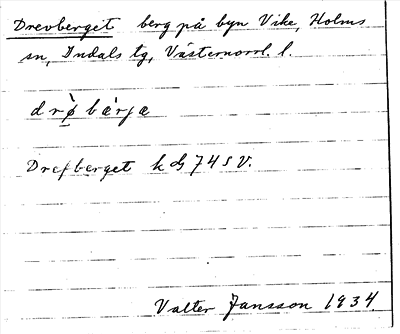 Drevberget berg på byn Vike, Holms
sn, Indals tg, Västernorrl. l.
drø̀ bæ̀rjæ
Drefberget k G 74 S V.
Valter Jansson 1934.